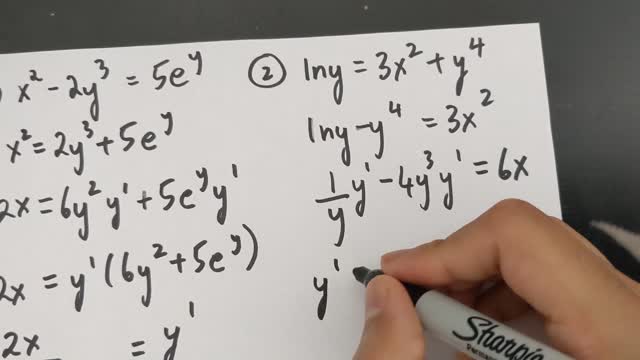 x² - 2y³ = 5e^y
x² = 2y³ + 5e^y
2x = 6y²y' + 5e^y y'
2x = y'(6y² + 5e^y)
2x = y'
② lny = 3x² + y⁴
lny - y⁴ = 3x²
1/y y' - 4y³y' = 6x
y'
Sharpie